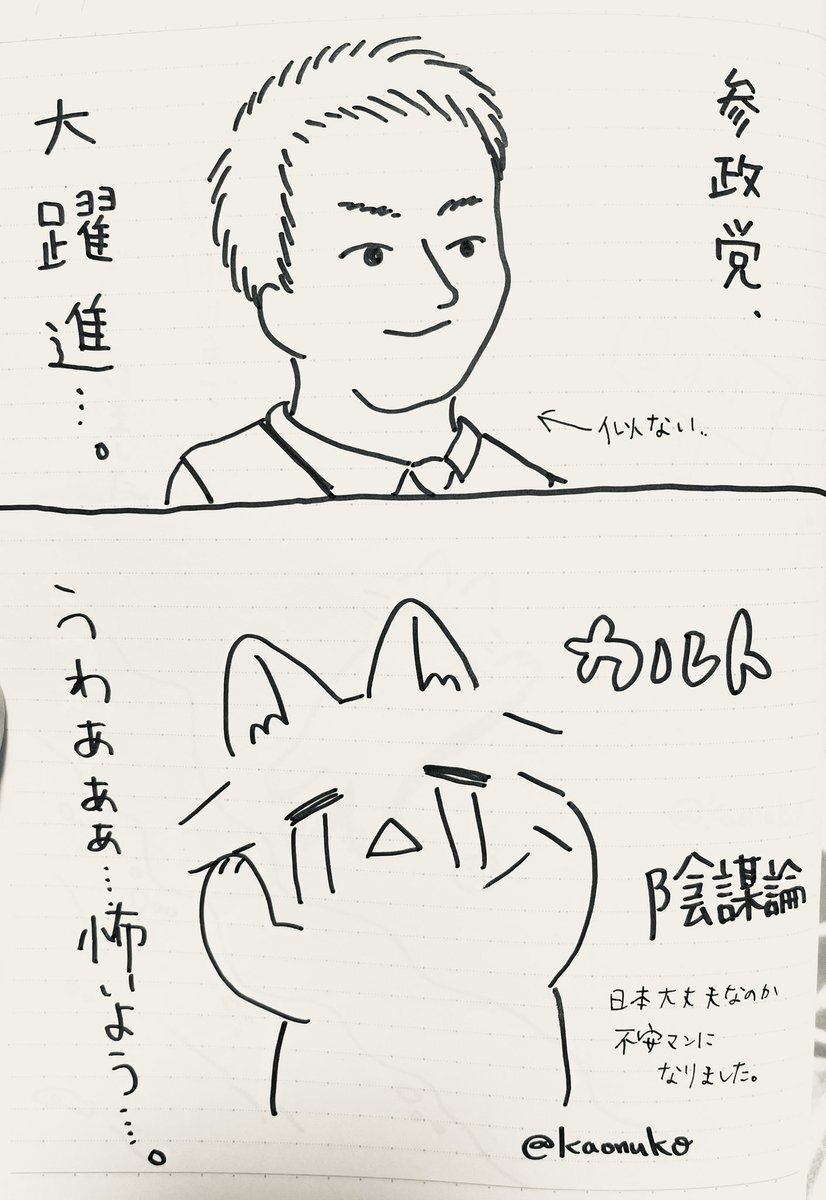 参政党、
大躍進…。
←似ない..
カルト
陰謀論
うわぁぁぁ…怖いよう…。
日本大丈夫なのか
不安マンに
なりました。
@kaonuko